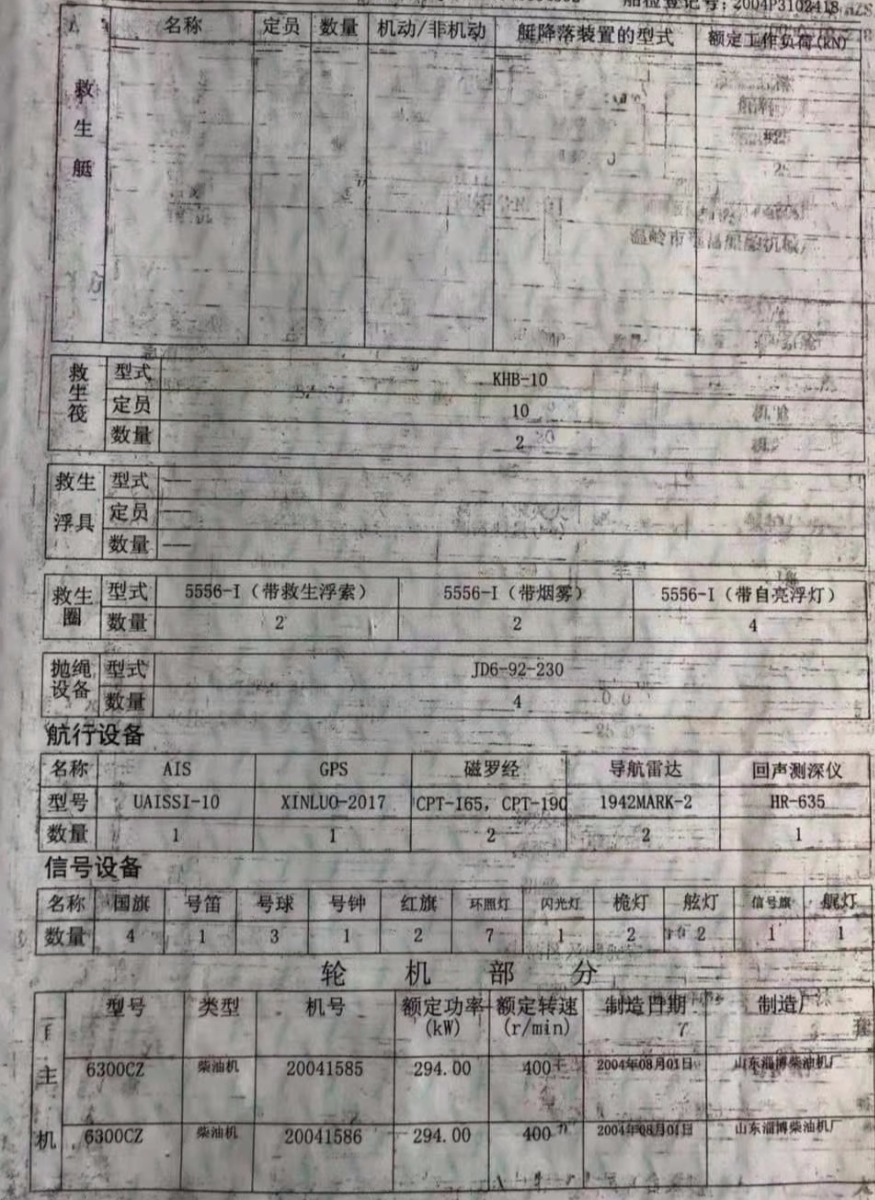 船检登记号：2004P3102418
名称 定员 数量 机动/非机动 艇降落装置的型式 额定工作负荷(kN)
救生艇
救生筏 型式 KHB-10
定员 10
数量 2
救生浮具 型式 —
定员 —
数量 —
救生圈 型式 5556-I（带救生浮索） 5556-I（带烟雾） 5556-I（带自亮浮灯）
数量 2 2 4
抛绳设备 型式 JD6-92-230
数量 4
航行设备
名称 AIS GPS 磁罗经 导航雷达 回声测深仪
型号 UAISSI-10 XINLUO-2017 CPT-165, CPT-190 1942MARK-2 HR-635
数量 1 1 2 2 1
信号设备
名称 国旗 号笛 号球 号钟 红旗 环照灯 闪光灯 桅灯 舷灯 信号旗 艉灯
数量 4 1 3 1 2 7 1 2 2 1 1
轮机部分
主机 型号 类型 机号 额定功率(kW) 额定转速(r/min) 制造日期 制造厂
6300CZ 柴油机 20041585 294.00 400 2004年08月01日 山东淄博柴油机厂
6300CZ 柴油机 20041586 294.00 400 2004年08月01日 山东淄博柴油机厂